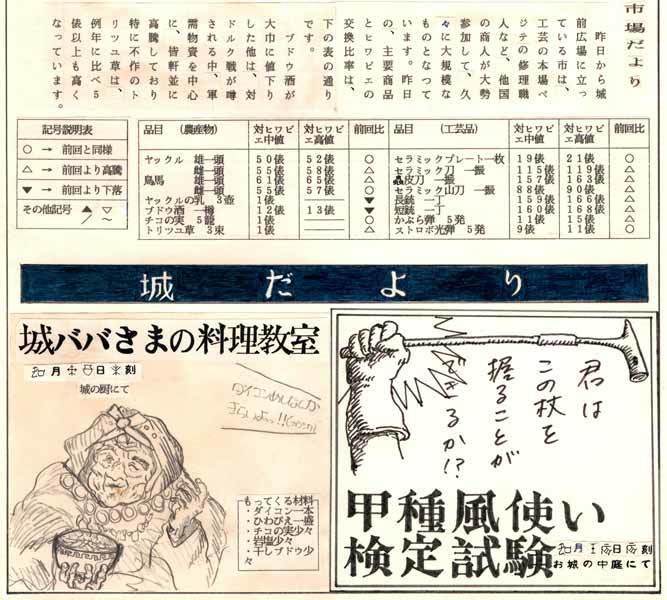 市場だより
昨日から城
前広場に立っ
ている市は、
工芸の本場ペ
ジテの修理職
人など、他国
の商人が大勢
参加して、久
々に大規模な
ものとなって
います。昨日
の、主要商品
とヒワビエの
交換比率は、
下の表の通り
です。
ブドウ酒が
大巾に値下り
した他は、対
ドルク戦が噂
される中、軍
需物資を中心
に、皆軒並に
高騰しており
特に不作のト
リツユ草は、
例年に比べ5
俵以上も高く
なっています。
記号説明表
○ → 前回と同様
△ → 前回より高騰
▼ → 前回より下落
その他記号 ▲ ▽ / ~
品目 (農産物) 対ヒワビエ中値 対ヒワビエ高値 前回比
ヤックル 雄一頭 50俵 52俵 ○
雌一頭 55俵 58俵 △
鳥馬 雄一頭 61俵 65俵 △
雌一頭 55俵 57俵 ○
ヤックルの乳 3壺 1俵 ▼
ブドウ酒 一樽 12俵 13俵 ▼
チコの実 5籠 1俵 ○
トリツユ草 3束 1俵 △
品目 (工芸品) 対ヒワビエ中値 対ヒワビエ高値 前回比
セラミックプレート一枚 19俵 21俵 ○
セラミック刀 一振 115俵 119俵 △
皮刀 一振 157俵 163俵 △
セラミック山刀 一振 88俵 90俵 △
長銃 一丁 159俵 166俵 △
短銃 一丁 160俵 168俵 △
かぶら弾 5発 15俵 15俵 ○
ストロボ光弾 5発 9俵 11俵 △
城だより
城ババさまの料理教室
月 日 刻
城の厨にて
もってくる材料
・ダイコン一本
・ひわびえ一盛
・チコの実少々
・岩塩少々
・干しブドウ少
々
君は
この杖を
握ることが
できるか!?
甲種風使い
検定試験
月 日 刻
お城の中庭にて